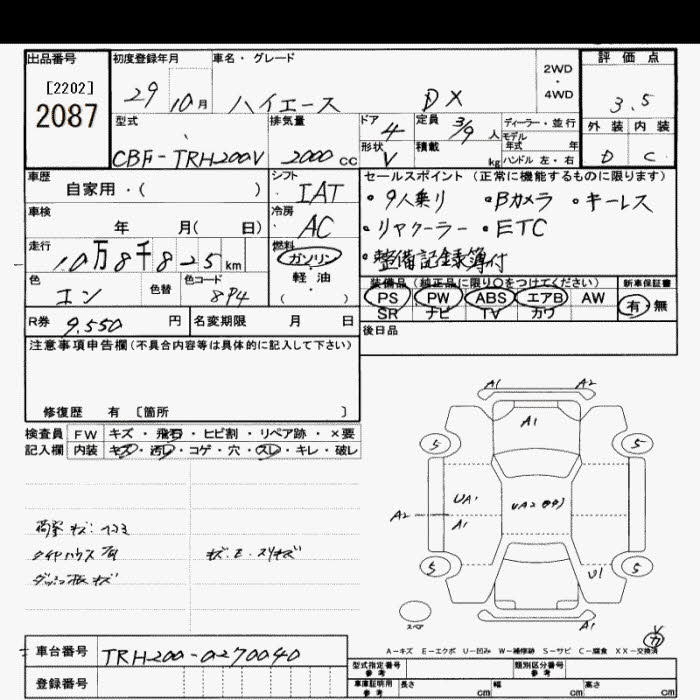 出品番号 初度登録年月 車名・グレード 2WD・4WD 評価点
[2202]
2087
29 10月 ハイエース DX 3.5
型式 排気量 ドア 4 定員 3/9 人 ディーラー・並行 外装 内装
モデル年式 年
CBF-TRH200V 2000 CC 形状 V 積載 kg ハンドル 左・右 D C
車歴 自家用・( ) シフト IAT セールスポイント (正常に機能するものに限ります)
・9人乗り ・Bカメラ ・キーレス
車検 年 月( 日) 冷房 AC ・リヤクーラー ・ETC
走行 10万8千825km 燃料 ガソリン・軽油・( ) ・整備記録簿付
色 色替 色コード 8P4 装備品(純正品に限り○をつけてください) 新車保証書
PS PW ABS エアB AW 有・無
SR ナビ TV カワ
R券 9.550 円 名変期限 月 日 後日品
注意事項申告欄(不具合内容等は具体的に記入して下さい)
修復歴 有 [箇所 ]
検査員 FW キズ・飛石・ヒビ割・リペア跡・×要
記入欄 内装 キズ・汚レ・コゲ・穴・スレ・キレ・破レ
A1 A2
A1
5 5
UA1 UA2
A2 A1
5 5
U1
スペア A1
A-キズ E-エクボ U-凹み W-補修跡 S-サビ C-腐食 XX-交換済
車台番号 TRH200-0270040
型式指定番号 参考 類別区分番号 参考
登録番号 車庫証明用 参考 長さ cm 幅 cm 高さ cm